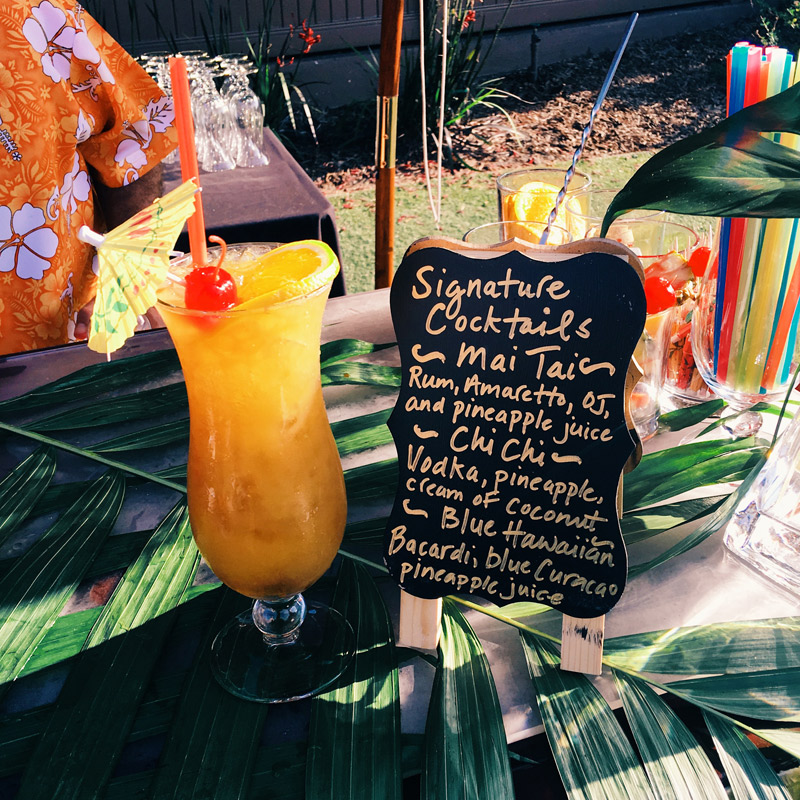 Signature
Cocktails
Mai Tai
Rum, Amaretto, OJ,
and pineapple juice
Chi Chi
Vodka, pineapple,
cream of coconut
Blue Hawaiian
Bacardi, blue Curaçao
pineapple juice